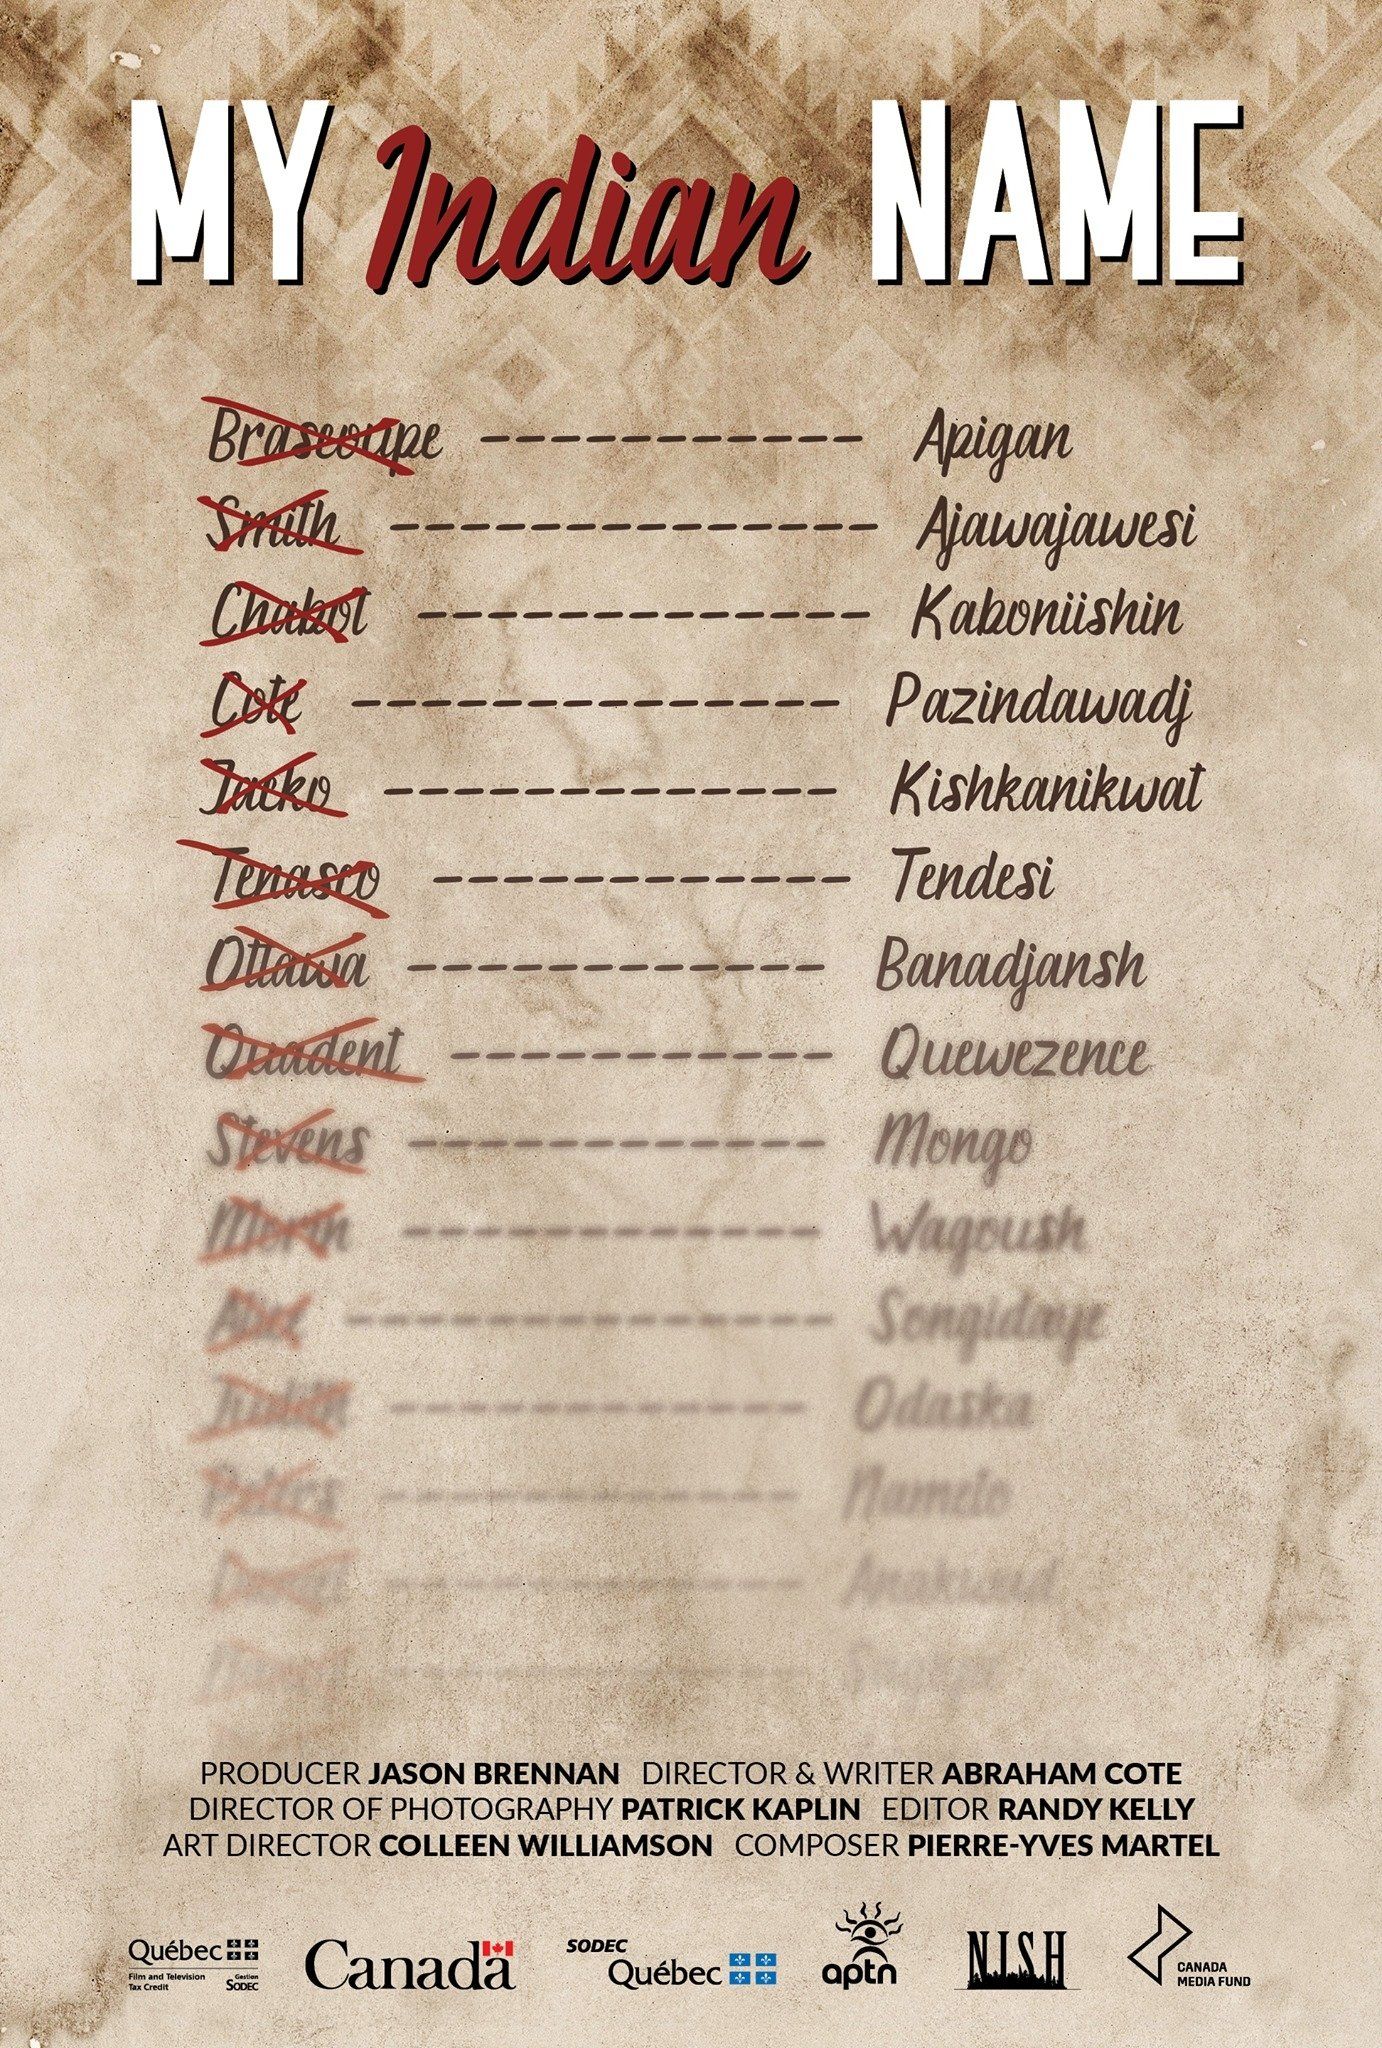 MY Indian NAME
Brascoupe ------------ Apigan
Smith -------------- Ajawajawesi
Chabot ------------- Kaboniishin
Cote -------------- Pazindawadj
Jacko ------------- Kishkanikwat
Tenasco ------------ Tendesi
Ottawa ------------ Banadjansh
Quadent ----------- Quewezence
Stevens ------------ Mongo
Morin ------------ Wagoush
-------------- Songidaye
------------ Odaska
PRODUCER JASON BRENNAN DIRECTOR & WRITER ABRAHAM COTE
DIRECTOR OF PHOTOGRAPHY PATRICK KAPLIN EDITOR RANDY KELLY
ART DIRECTOR COLLEEN WILLIAMSON COMPOSER PIERRE-YVES MARTEL
Québec
Film and Television
Tax Credit
Gestion
SODEC
Canada
SODEC
Québec
aptn
NISH
CANADA
MEDIA FUND